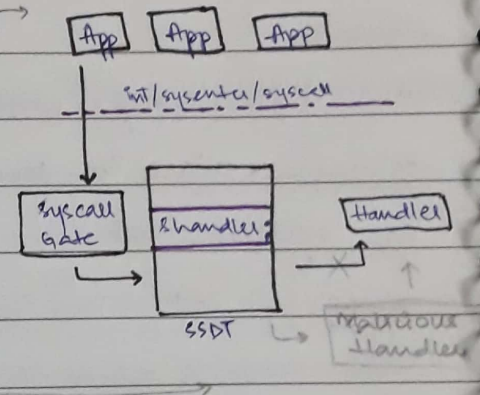 App App App
int/sysenter/syscall
Syscall
Gate
&handler;
Handler
SSDT
Malicious
Handler